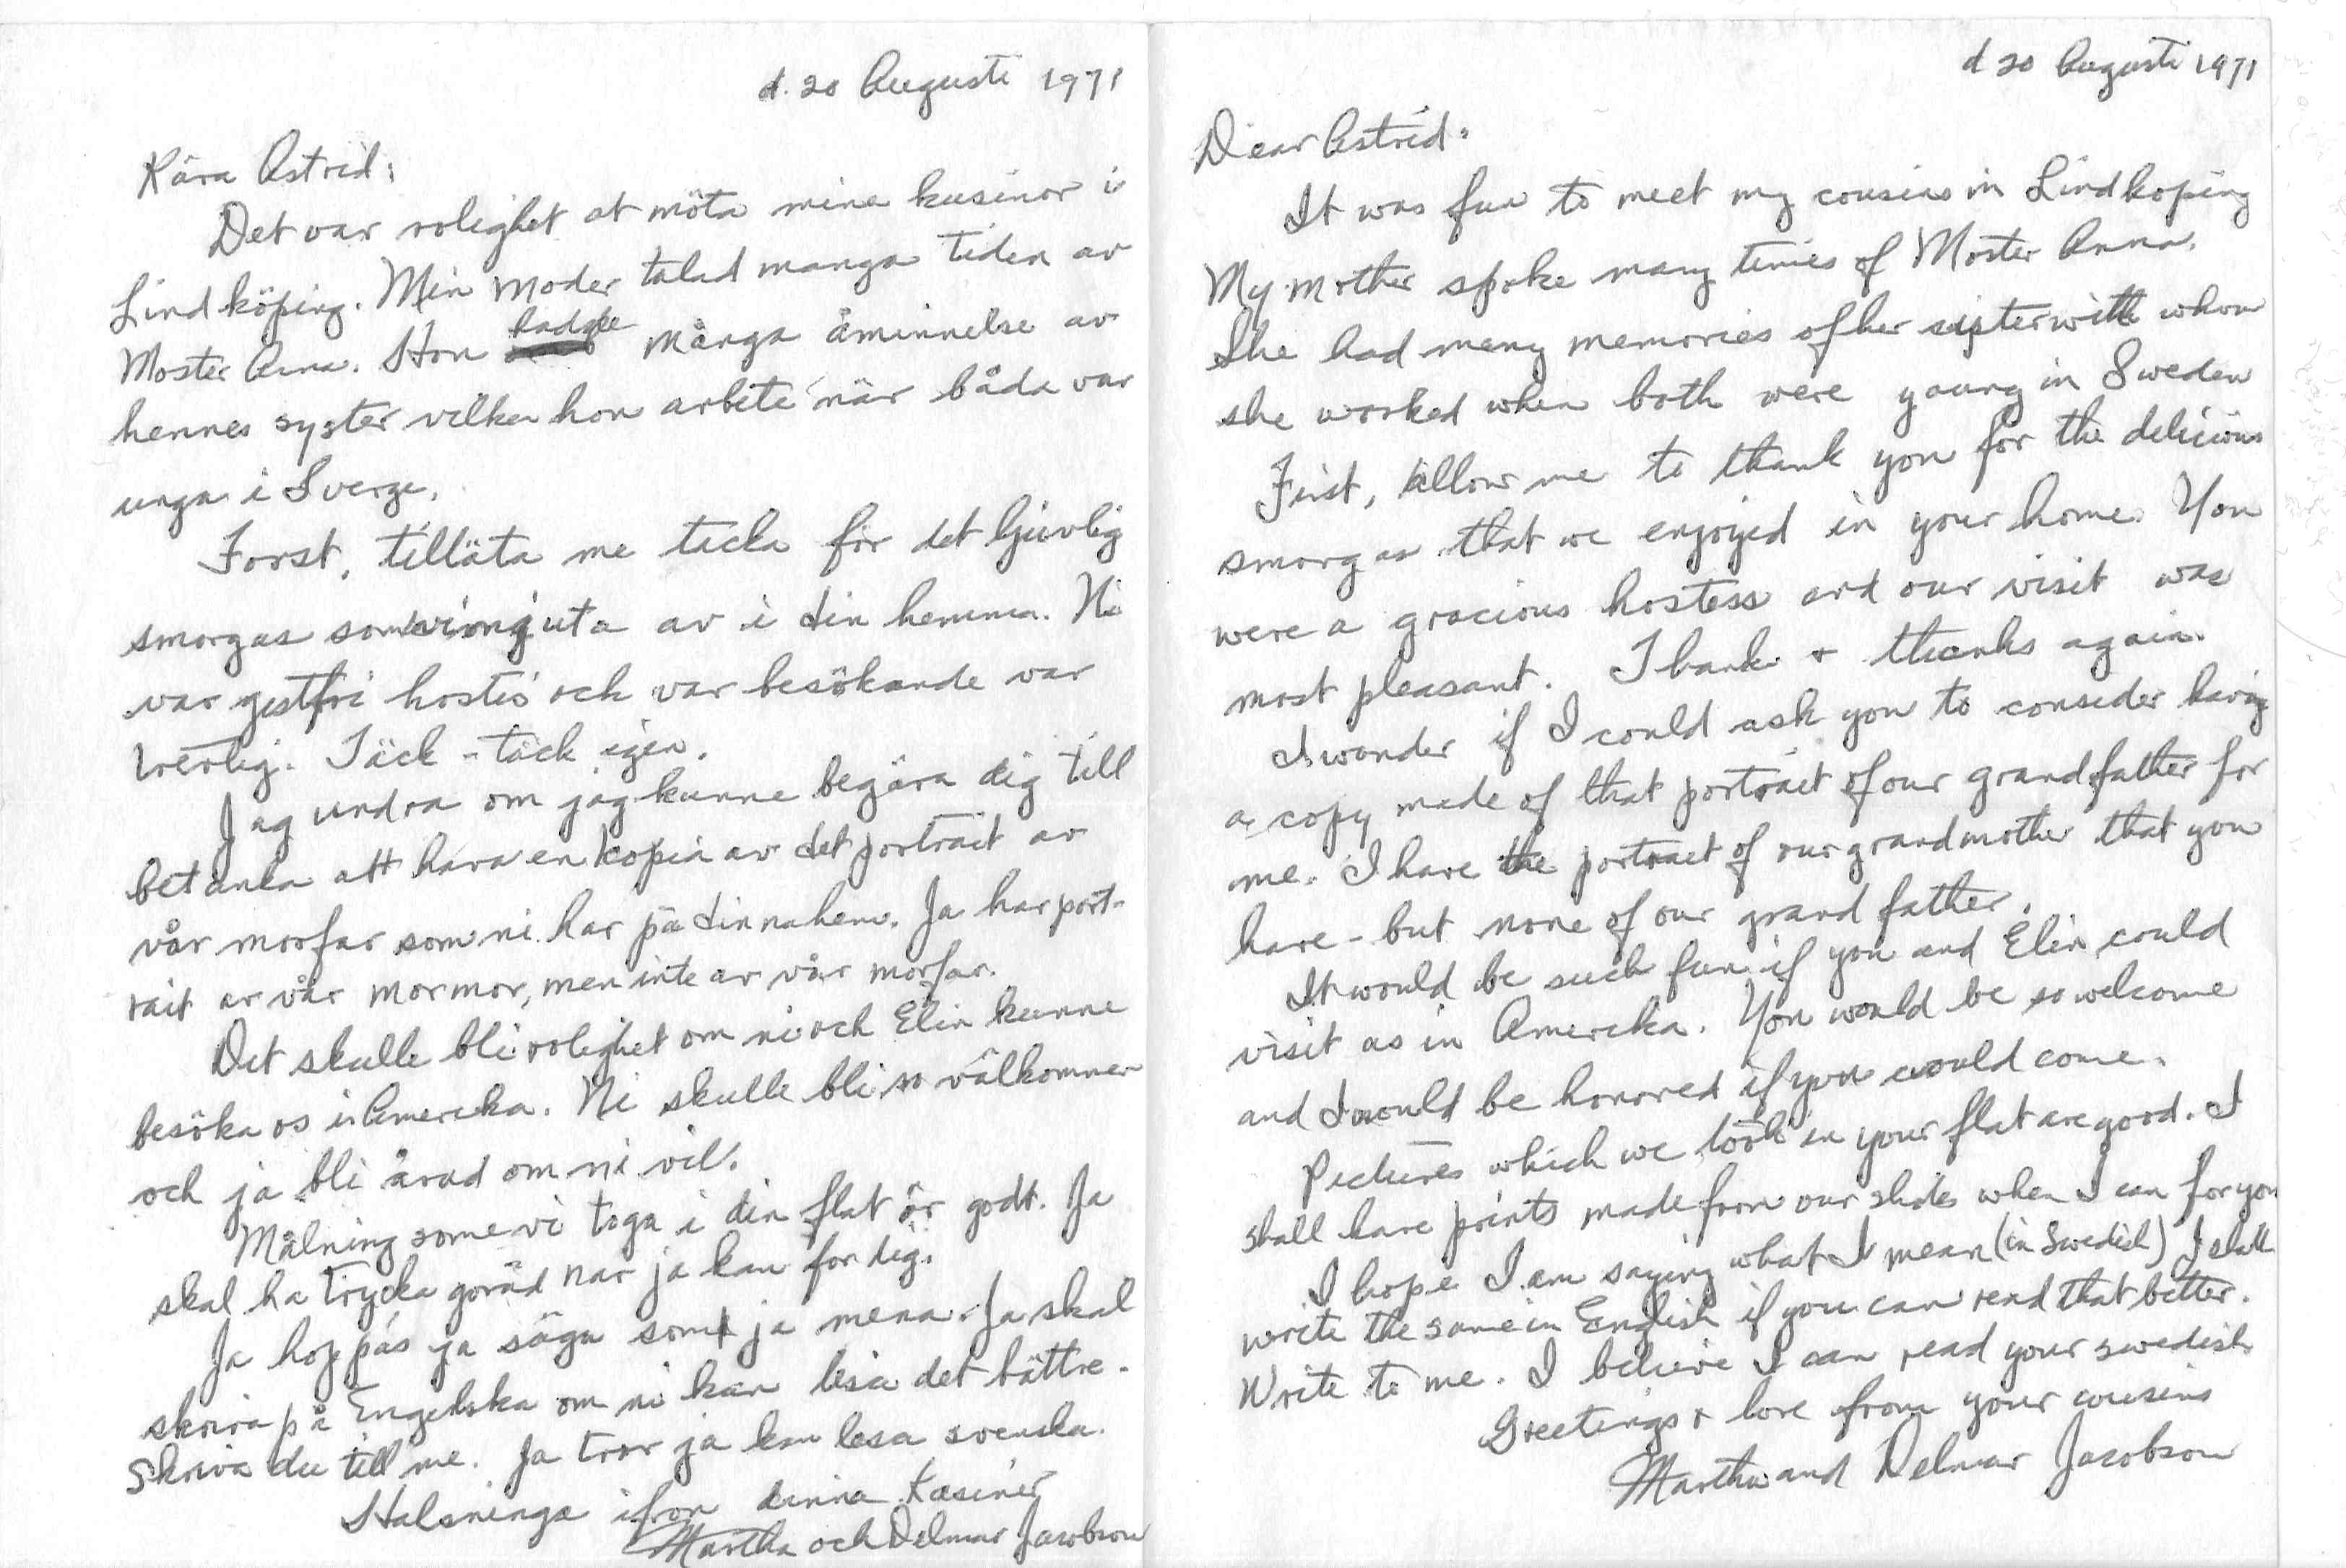 d. 20 Augusti 1971
Kära Astrid:
Det var rolighet at möta mina kusinor i
Lindköping. Min moder talad manga tiden av
Moster Anna. Hon hadde många åminnelse av
hennes syster vilken hon arbete när båda var
unga i Sverge.
Forst, tilläta me tacka för det ljuvlig
smorgas som vi njuta av i din hemma. Ni
var gestfri hostis och var besökande var
trevlig. Täck - täck igen.
Jag undra om jag kunne begära dig till
betanka att hava en kopia av det portrait av
vår morfar som ni har på dinna hem. Ja har port-
rait av vår mormor, men inte av vår morfar.
Det skulle bli rolighet om ni och Elin kunne
besöka os i Amereka. Ni skulle bli so välkommen
och ja bli ärad om ni vil.
Målning some vi toga i din flat är godt. Ja
skal ha trycka goräd nar ja kan for dig.
Ja hoppás ja säga som ja mena. Ja skal
skriva på Engelska om ni kan läsa det bättre.
Skriva du till me. Ja tror ja kan lesa svenska.
Halsninga ifron dinna kusiner
Martha och Delmar Jacobson
d 20 Augusti 1971
Dear Astrid:
It was fun to meet my cousins in Lindkoping
My mother spoke many times of Moster Anna.
She had many memories of her sister with whom
she worked when both were young in Sweden
First, allow me to thank you for the delicious
smorgas that we enjoyed in your home. You
were a gracious hostess and our visit was
most pleasant. Thank + thanks again.
I wonder if I could ask you to consider having
a copy made of that portrait of our grandfather for
me. I have the portraet of our grandmother that you
have - but none of our grand father.
It would be such fun if you and Elin could
visit as in Amereka. You would be so welcome
and I would be honored if you would come.
Pictures which we took in your flat are good. I
shall have prints made from our slides when I can for you
I hope I am saying what I mean (in Swedish) I shall
write the same in English if you can read that better.
Write to me. I believe I can read your swedish
Greetings + love from your cousins
Martha and Delmar Jacobson